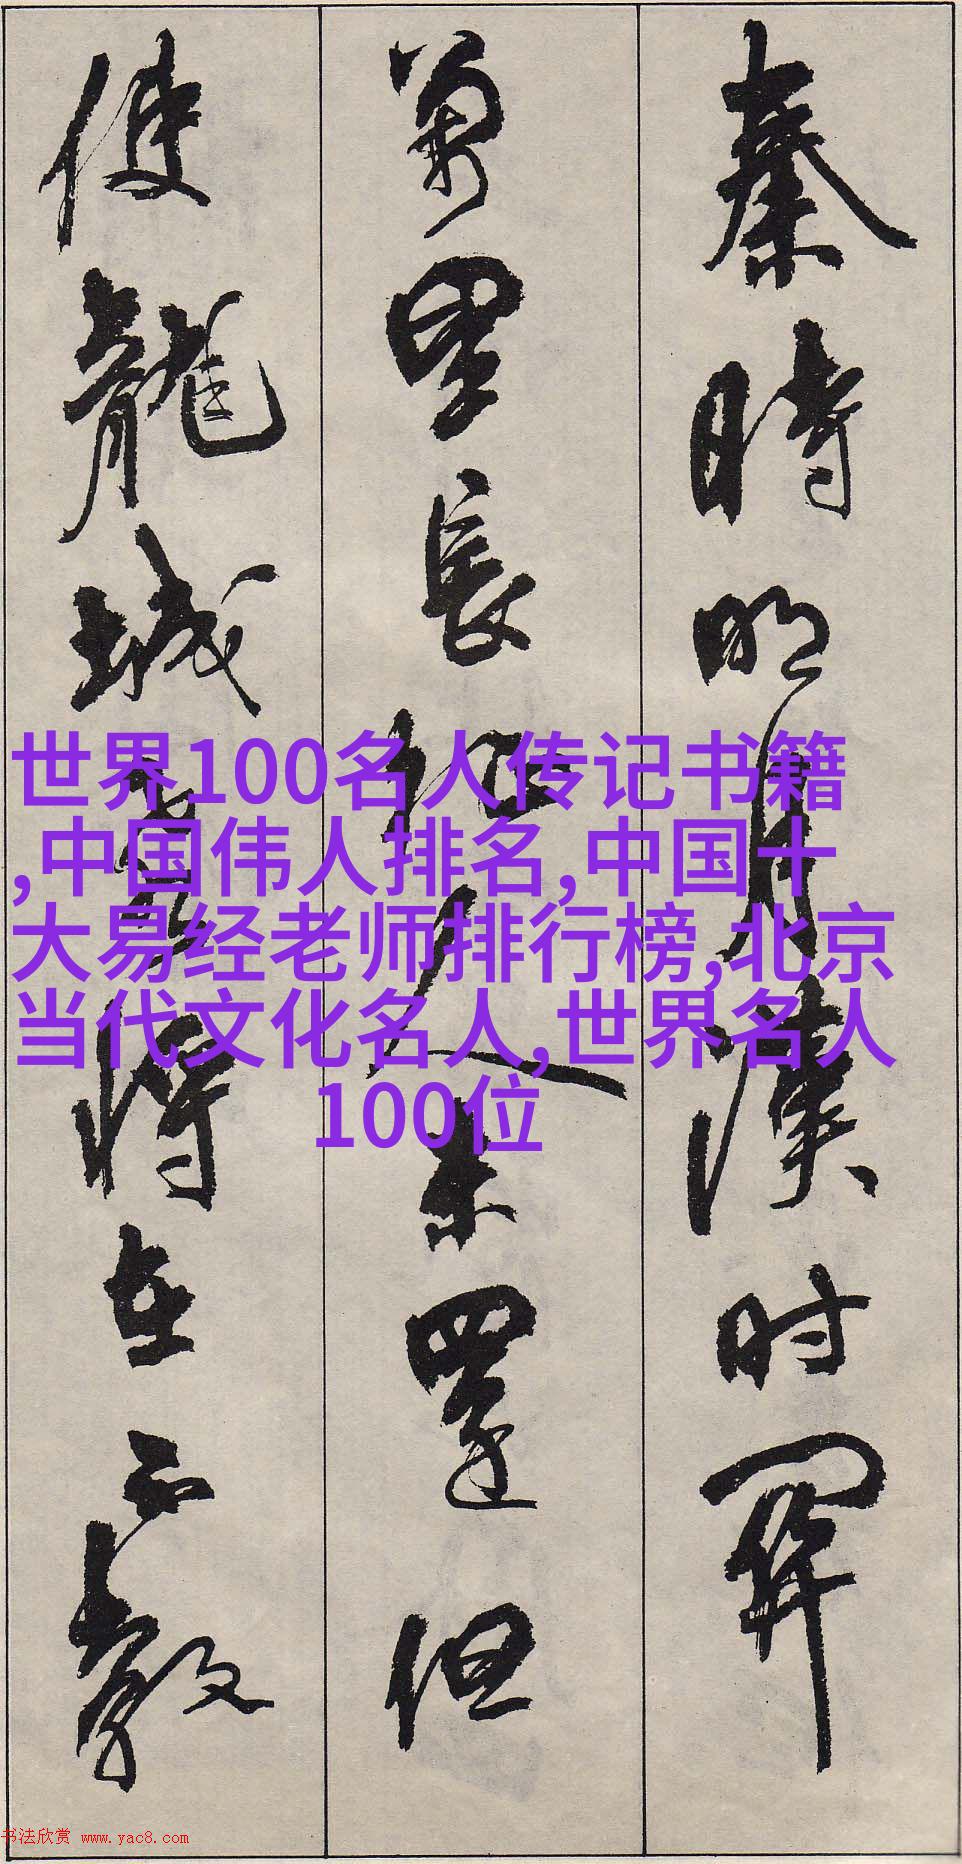 秦時明月漢時関
萬里長征人未還但
使龍城飛将在不教
世界100名人传记书籍
,中国伟人排名,中国十
大易经老师排行榜,北京
当代文化名人,世界名人
100位
书法欣赏 www.yac8.com